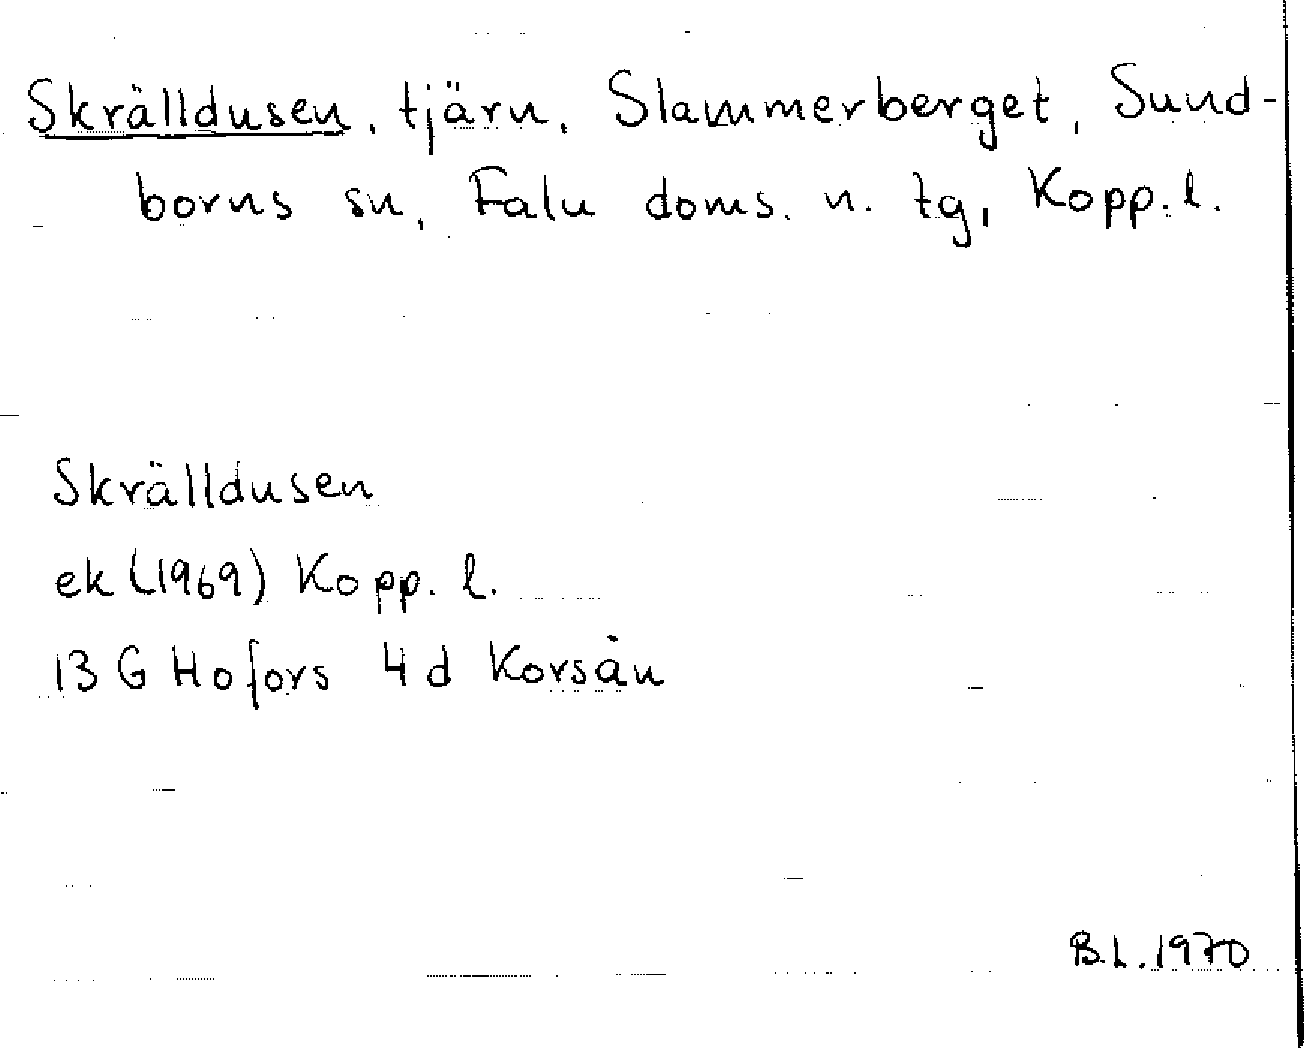 Skrälldusen, tjärn, Slammerberget, Sund-
borns sn, Falu doms. n. tg, Kopp. l.
Skrälldusen
ek (1969) Kopp. l.
13 G Hofors 4 d Korsån
B.L. 1970